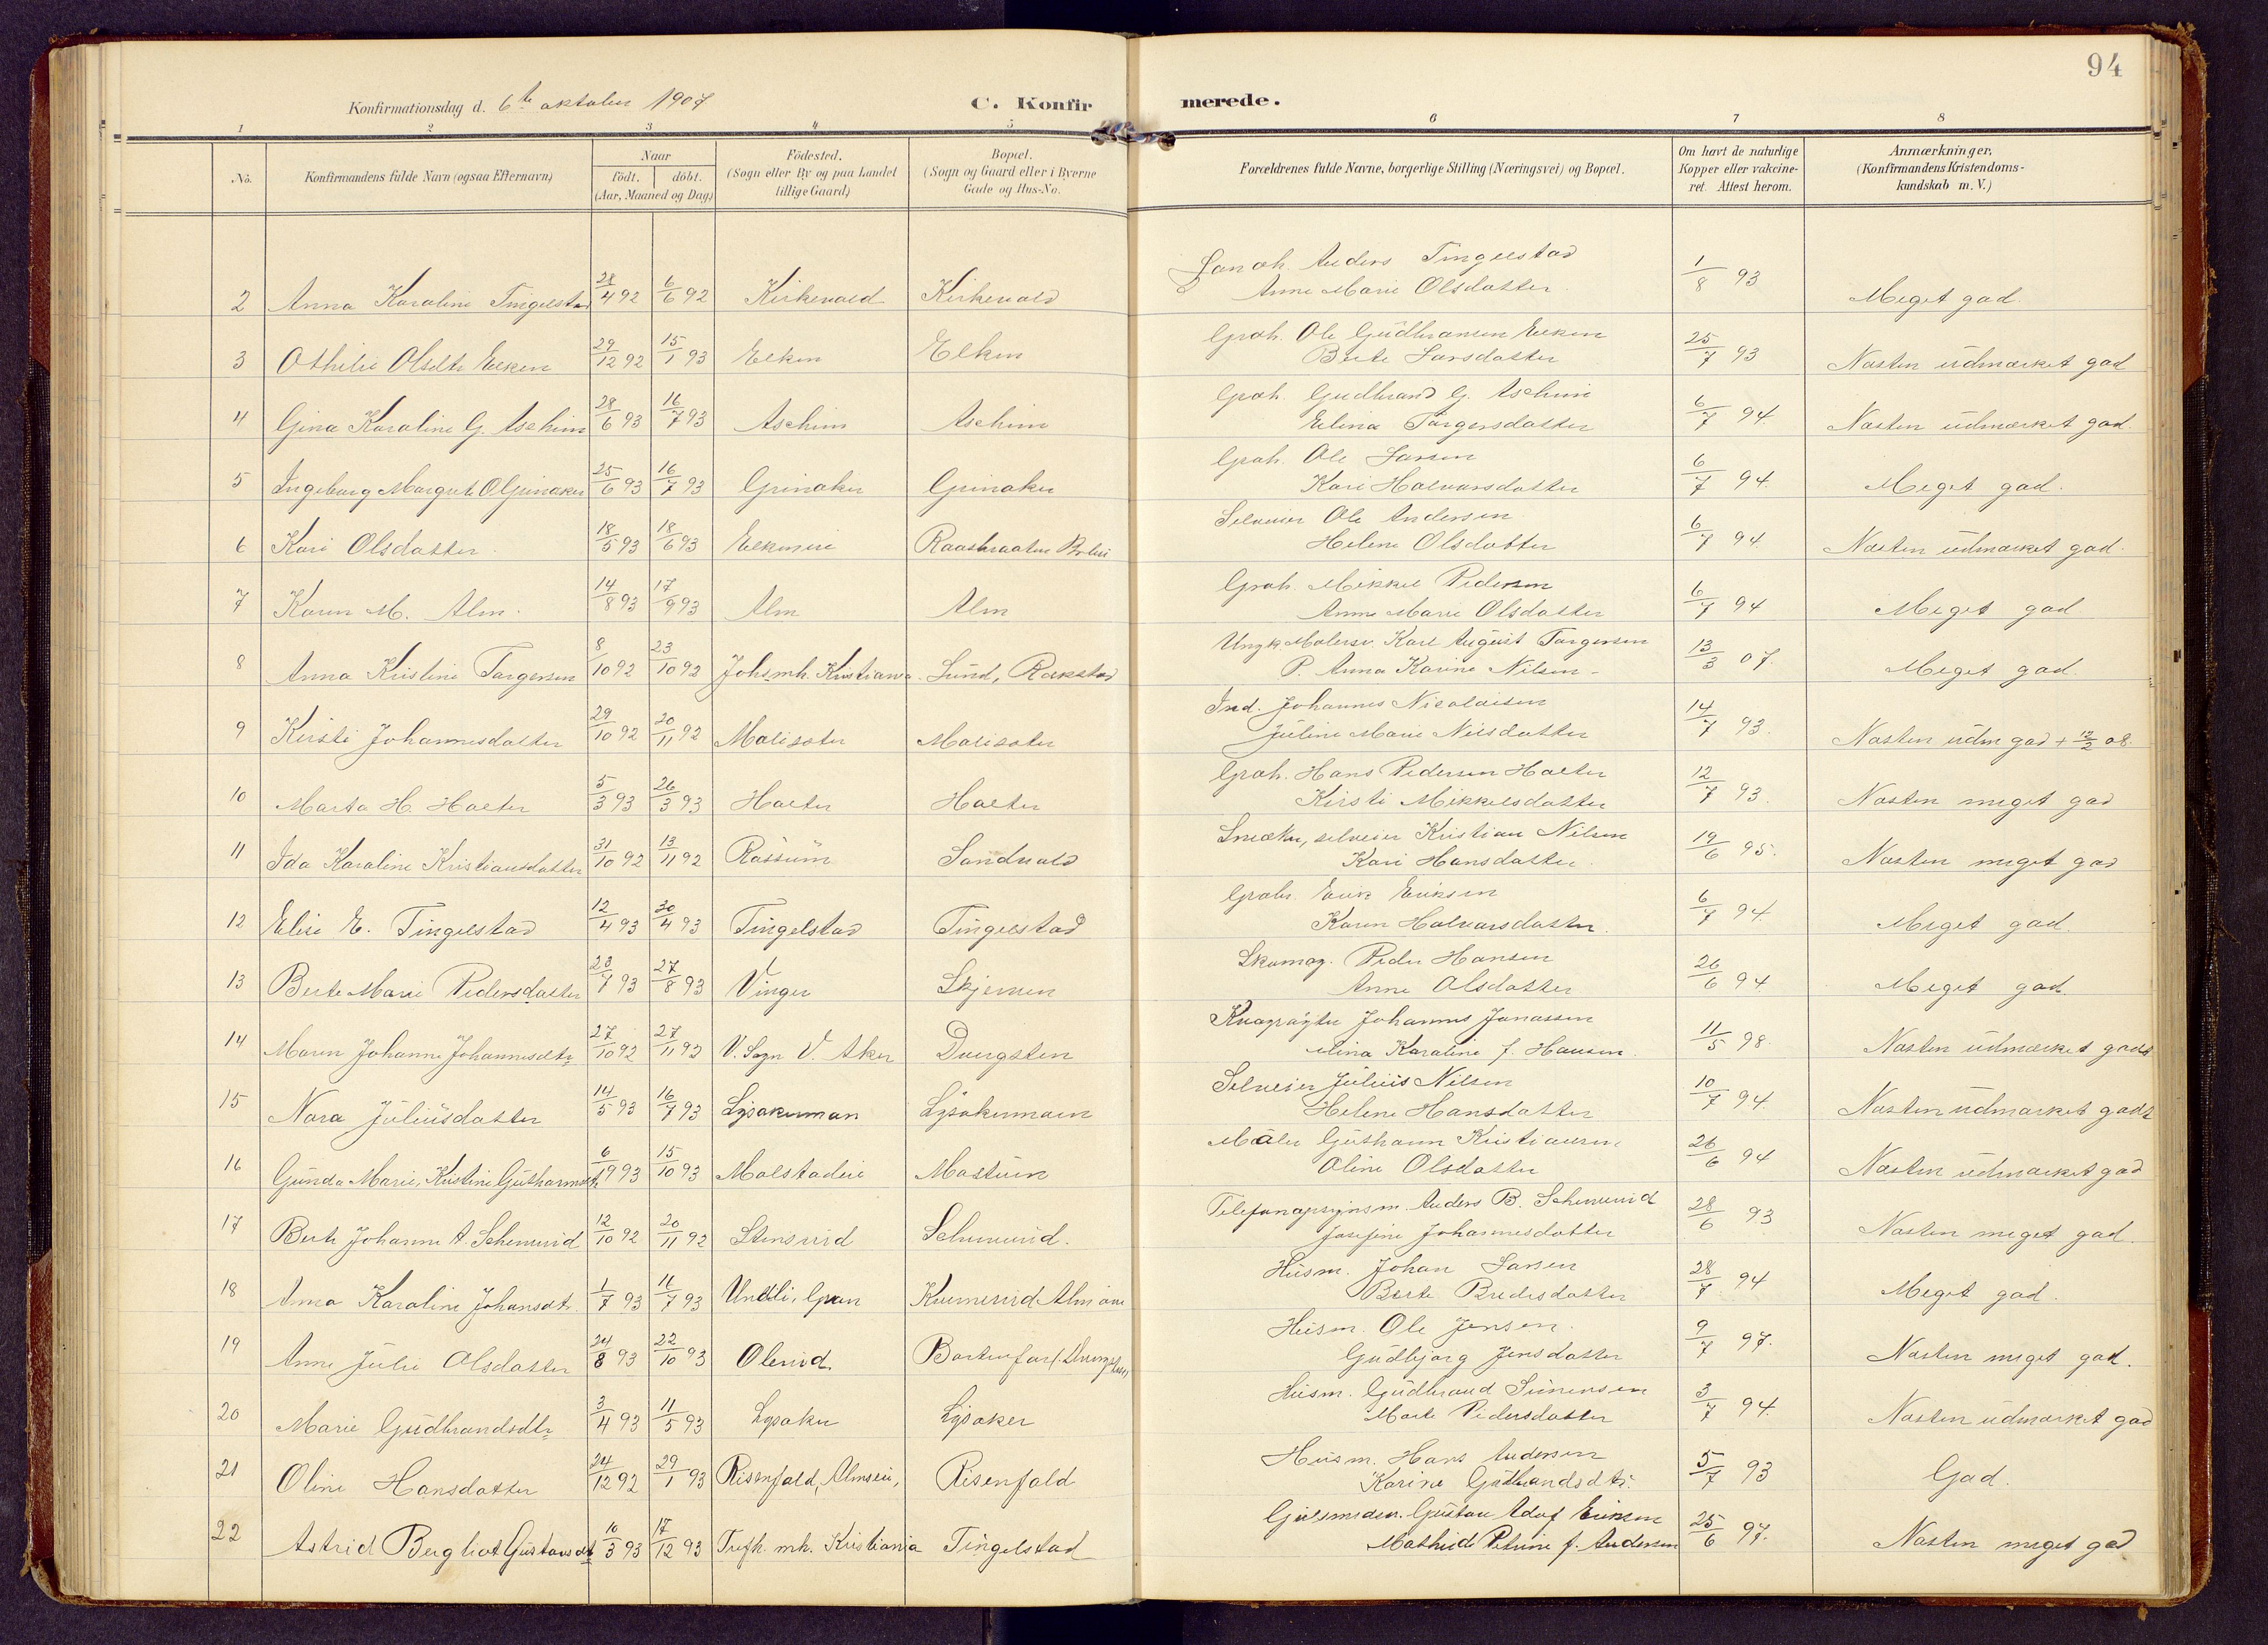 94
Konfirmationsdag d. 6te oktober 1907
C. Konfirmerede.
1 2 3 4 5 6 7 8
No. Konfirmandens fulde Navn (ogsaa Efternavn) Naar født. døbt. (Aar, Maaned og Dag) Födested. (Sogn eller By og paa Landet tillige Gaard) Bopæl. (Sogn og Gaard eller i Byerne Gade og Hus-No. Forældrenes fulde Navne, borgerlige Stilling (Næringsvei) og Bopæl. Om havt de naturlige Kopper eller vakcineret. Attest herom. Anmærkninger. (Konfirmandens Kristendomskundskab m. V.)
2 Anna Karoline Tingelstad 28/4 92 6/6 92 Kirkevold Kirkevold Anders Tingelstad
Anne Marie Olsdatter 1/8 93 Meget god.
3 Othilie Olsdtr Elken 29/12 92 15/1 93 Elken Elken Grdb. Ole Gudbransen Elken
Berte Larsdatter 25/7 93 Næsten udmærket god
4 Gina Karoline G. Aschim 28/6 93 16/7 93 Aschim Aschim Grdb. Gudbrand G. Aschim
Elina Torgersdatter 6/7 94. Næsten udmærket god.
5 Ingeborg Margrete O Grinaker 25/6 93 16/7 93 Grinaker Grinaker Grdb. Ole Larsen
Kari Halvorsdatter 6/7 94. Meget god.
6 Kari Olsdatter. 18/5 93 18/6 93 Elkeneie Raastraaten Selveier Ole Andersen
Helene Olsdatter 6/7 94. Næsten udmærket god.
7 Karen M. Alm. 14/8 93 17/9 93 Alm Alm Grdb. Mikkel Pedersen
Anne Marie Olsdatter 6/7 94 Meget god
8 Anna Kristine Torgersen 8/10 92 23/10 92 Johs.mh. Kristiania Lund, Røkstad Ungk. Malersv. Karl August Torgersen
P. Anna Karine Nilsen - 13/3 07. Meget god.
9 Kirsti Johannesdatter 29/10 92 20/11 92 Moliseter Moliseter Ind. Johannes Nicolaisen
Juline Marie Nilsdatter 14/7 93. Næsten udm god + 12/2 08.
10 Marta H. Holter 5/3 93 26/3 93 Holter Holter Grdb. Hans Pedersen Holter
Kirsti Mikkelsdatter 12/7 93. Næsten meget god
11 Ida Karoline Kristiansdatter 31/10 92 13/11 92 Røssum Sandvold selveier Kristian Nilsen
Kari Hansdatter. 19/6 95. Næsten meget god
12 Elise E. Tingelstad 12/4 93 30/4 93 Tingelstad Tingelstad Grdbr. Erik Eriksen
Karen Halvorsdatter. 6/7 94. Meget god.
13 Berte Marie Pedersdatter 23/7 93 27/8 93 Vinger Skjerven Skomag. Peder Hansen
Anne Olsdatter 26/6 94 Meget god.
14 Maren Johanne Johannesdtr 27/10 92 27/11 92 V. Sogn V. Aker Dvergsten Johannes Jonassen
Mina Karoline f. Hansen. 11/5 98. Næsten udmærket godt
15 Nora Juliusdatter 14/5 93 16/7 93 Lysakermoen Lysakermoen Selveier Julius Nilsen
Helene Hansdatter 10/7 94. Næsten udmærket godt
16 Gunda Marie, Kristine Guthormsdtr 6/9 93 15/10 93 Molstadeie Mostuen Maler Guthorm Kristiansen
Oline Olsdatter 26/6 94 Næsten udmærket god
17 Berte Johanne A. Schennrud 12/10 92 20/11 92 Stensrud Schennrud. Telefonopsynsm. Anders B. Schennrud
Josefine Johannesdatter 28/6 93 Næsten meget god.
18 Anna Karoline Johansdtr. 1/7 93 16/7 93 Undeli, Gran Husm. Johan Larsen
Berte Bredesdatter 28/7 94 Meget god.
19 Anne Julie Olsdatter 24/8 93 22/10 93 Olerud. Husm. Ole Jensen.
Gudbjørg Jensdatter 9/7 97. Næsten meget god.
20 Marie Gudbrandsdtr 3/4 93 11/5 93 Lysaker Lysaker Husm. Gudbrand Simensen
Marte Pedersdatter 3/7 94. Næsten udmærket god
21 Oline Hansdatter 24/12 92 29/1 93 Risenfald, Almseie, Risenfald Husm. Hans Andersen
Karine Gudbrandsdtr. 5/7 93 God.
22 Astrid Bergliot Gustavsdtr 10/3 93 17/12 93 Trefh. mh. Kristiania Tingelstad Gustav Adof Eriksen
Mathilde Petrine f. Andersen 25/6 97. Næsten meget god